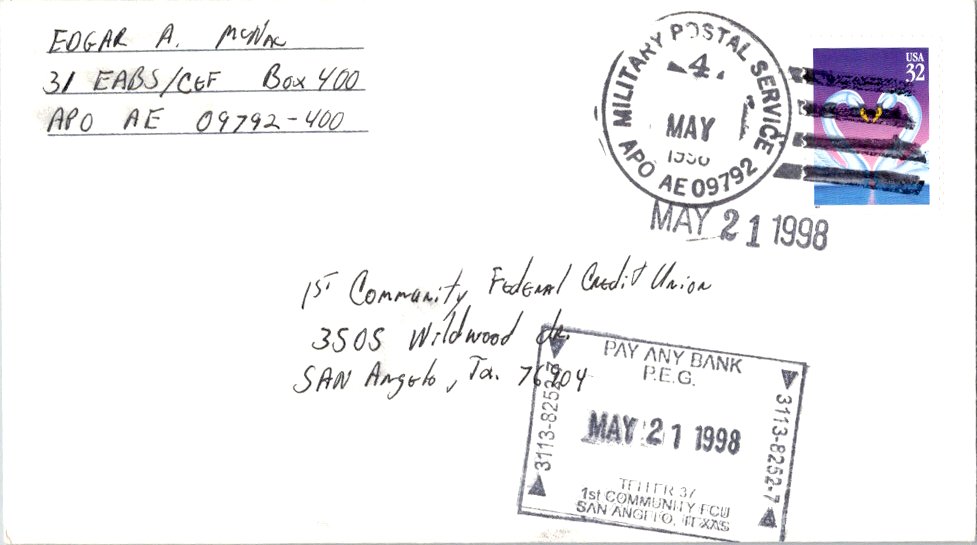 EDGAR A.
31 EABS/CEF Box 400
APO AE 09792-400
MILITARY POSTAL SERVICE
4
MAY
APO AE 09792
USA
32
MAY 21 1998
1ST Community Federal Credit Union
3505 Wildwood dr.
SAN Angelo, Tx. 76904
PAY ANY BANK
P.E.G.
3113-8252-7
MAY 21 1998
3113-8252-7
TELLER 37
1st COMMUNITY FCU
SAN ANGELO, TEXAS